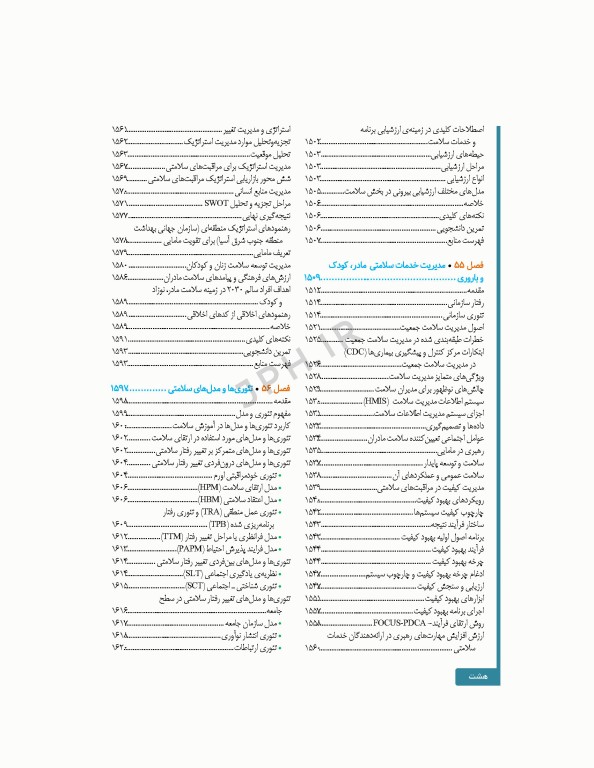 اصطلاحات کلیدی در زمینه‌ی ارزشیابی برنامه
و خدمات سلامت ۱۵۰۲
حیطه‌های ارزشیابی ۱۵۰۳
مراحل ارزشیابی ۱۵۰۳
انواع ارزشیابی ۱۵۰۳
مدل‌های مختلف ارزشیابی بیرونی در بخش سلامت ۱۵۰۵
خلاصه ۱۵۰۶
نکته‌های کلیدی ۱۵۰۶
تمرین دانشجویی ۱۵۰۶
فهرست منابع ۱۵۰۷
فصل ۵۵ • مدیریت خدمات سلامتی مادر، کودک
و باروری ۱۵۰۹
مقدمه ۱۵۱۲
رفتار سازمانی ۱۵۱۴
تئوری سازمانی ۱۵۱۴
اصول مدیریت سلامت جمعیت ۱۵۲۱
خطرات طبقه‌بندی شده در مدیریت سلامت جمعیت ۱۵۲۵
ابتکارات مرکز کنترل و پیشگیری بیماری‌ها (CDC)
در مدیریت سلامت جمعیت ۱۵۲۶
ویژگی‌های متمایز مدیریت سلامت ۱۵۲۸
چالش‌های نوظهور برای مدیران سلامت ۱۵۲۹
سیستم اطلاعات مدیریت سلامت (HMIS) ۱۵۳۰
اجزای سیستم مدیریت اطلاعات سلامت ۱۵۳۱
داده‌ها و تصمیم‌گیری ۱۵۳۲
عوامل اجتماعی تعیین‌کننده سلامت مادران ۱۵۳۴
رهبری در مامایی ۱۵۳۵
سلامت و توسعه پایدار ۱۵۳۷
سلامت عمومی و عملکردهای آن ۱۵۳۸
مدیریت کیفیت در مراقبت‌های سلامتی ۱۵۳۹
رویکردهای بهبود کیفیت ۱۵۴۰
چارچوب کیفیت سیستم‌ها ۱۵۴۲
ساختار فرآیند نتیجه ۱۵۴۳
برنامه اصول اولیه بهبود کیفیت ۱۵۴۳
فرآیند بهبود کیفیت ۱۵۴۴
چرخه بهبود کیفیت ۱۵۴۴
ادغام چرخه بهبود کیفیت و چارچوب سیستم ۱۵۴۷
ارزیابی و سنجش کیفیت ۱۵۴۷
ابزارهای بهبود کیفیت ۱۵۵۱
اجرای برنامه بهبود کیفیت ۱۵۵۷
روش ارتقای فرآیند- FOCUS-PDCA ۱۵۵۸
ارزش افزایش مهارت‌های رهبری در ارائه‌دهندگان خدمات
سلامتی ۱۵۶۰
استراتژی و مدیریت تغییر ۱۵۶۱
تجزیه‌وتحلیل موارد مدیریت استراتژیک ۱۵۶۲
تحلیل موقعیت ۱۵۶۳
مدیریت استراتژیک برای مراقبت‌های سلامتی ۱۵۶۷
شش محور بازاریابی استراتژیک مراقبت‌های سلامتی ۱۵۶۹
مدیریت منابع انسانی ۱۵۷۰
مراحل تجزیه و تحلیل SWOT ۱۵۷۱
نتیجه‌گیری نهایی ۱۵۷۷
رهنمودهای استراتژیک منطقه‌ای (سازمان جهانی بهداشت
منطقه جنوب شرق آسیا) برای تقویت مامایی ۱۵۷۸
تعریف مامایی ۱۵۷۹
مدیریت توسعه سلامت زنان و کودکان ۱۵۸۰
ارزش‌های فرهنگی و پیامدهای سلامت مادران ۱۵۸۶
اهداف افراد سالم ۲۰۳۰ در زمینه سلامت مادر، نوزاد
و کودک ۱۵۸۹
رهنمودهای اخلاقی از کدهای اخلاقی ۱۵۸۹
خلاصه ۱۵۸۹
نکته‌های کلیدی ۱۵۹۱
تمرین دانشجویی ۱۵۹۳
فهرست منابع ۱۵۹۳
فصل ۵۶ • تئوری‌ها و مدل‌های سلامتی ۱۵۹۷
مقدمه ۱۵۹۸
مفهوم تئوری و مدل ۱۵۹۹
کاربرد تئوری‌ها و مدل‌ها در آموزش سلامت ۱۶۰۱
تئوری‌ها و مدل‌های مورد استفاده در ارتقای سلامت ۱۶۰۲
تئوری‌ها و مدل‌های متمرکز بر تغییر رفتار سلامتی ۱۶۰۲
تئوری‌ها و مدل‌های درون‌فردی تغییر رفتار سلامتی ۱۶۰۴
• تئوری خودمراقبتی اورم ۱۶۰۴
• مدل ارتقای سلامت (HPM) ۱۶۰۶
• مدل اعتقاد سلامتی (HBM) ۱۶۰۶
• تئوری عمل منطقی (TRA) و تئوری رفتار
برنامه‌ریزی شده (TPB) ۱۶۰۹
• مدل فرانظری یا مراحل تغییر رفتار (TTM) ۱۶۱۲
• مدل فرایند پذیرش احتیاط (PAPM) ۱۶۱۳
تئوری‌ها و مدل‌های بین‌فردی تغییر رفتار سلامتی ۱۶۱۴
• نظریه‌ی یادگیری اجتماعی (SLT) ۱۶۱۴
• تئوری شناختی ـ اجتماعی (SCT) ۱۶۱۵
تئوری‌ها و مدل‌های تغییر رفتار سلامتی در سطح
جامعه ۱۶۱۶
• مدل سازمان جامعه ۱۶۱۷
• تئوری انتشار نوآوری ۱۶۱۸
• تئوری ارتباطات ۱۶۲۰
هشت
SPH.IR